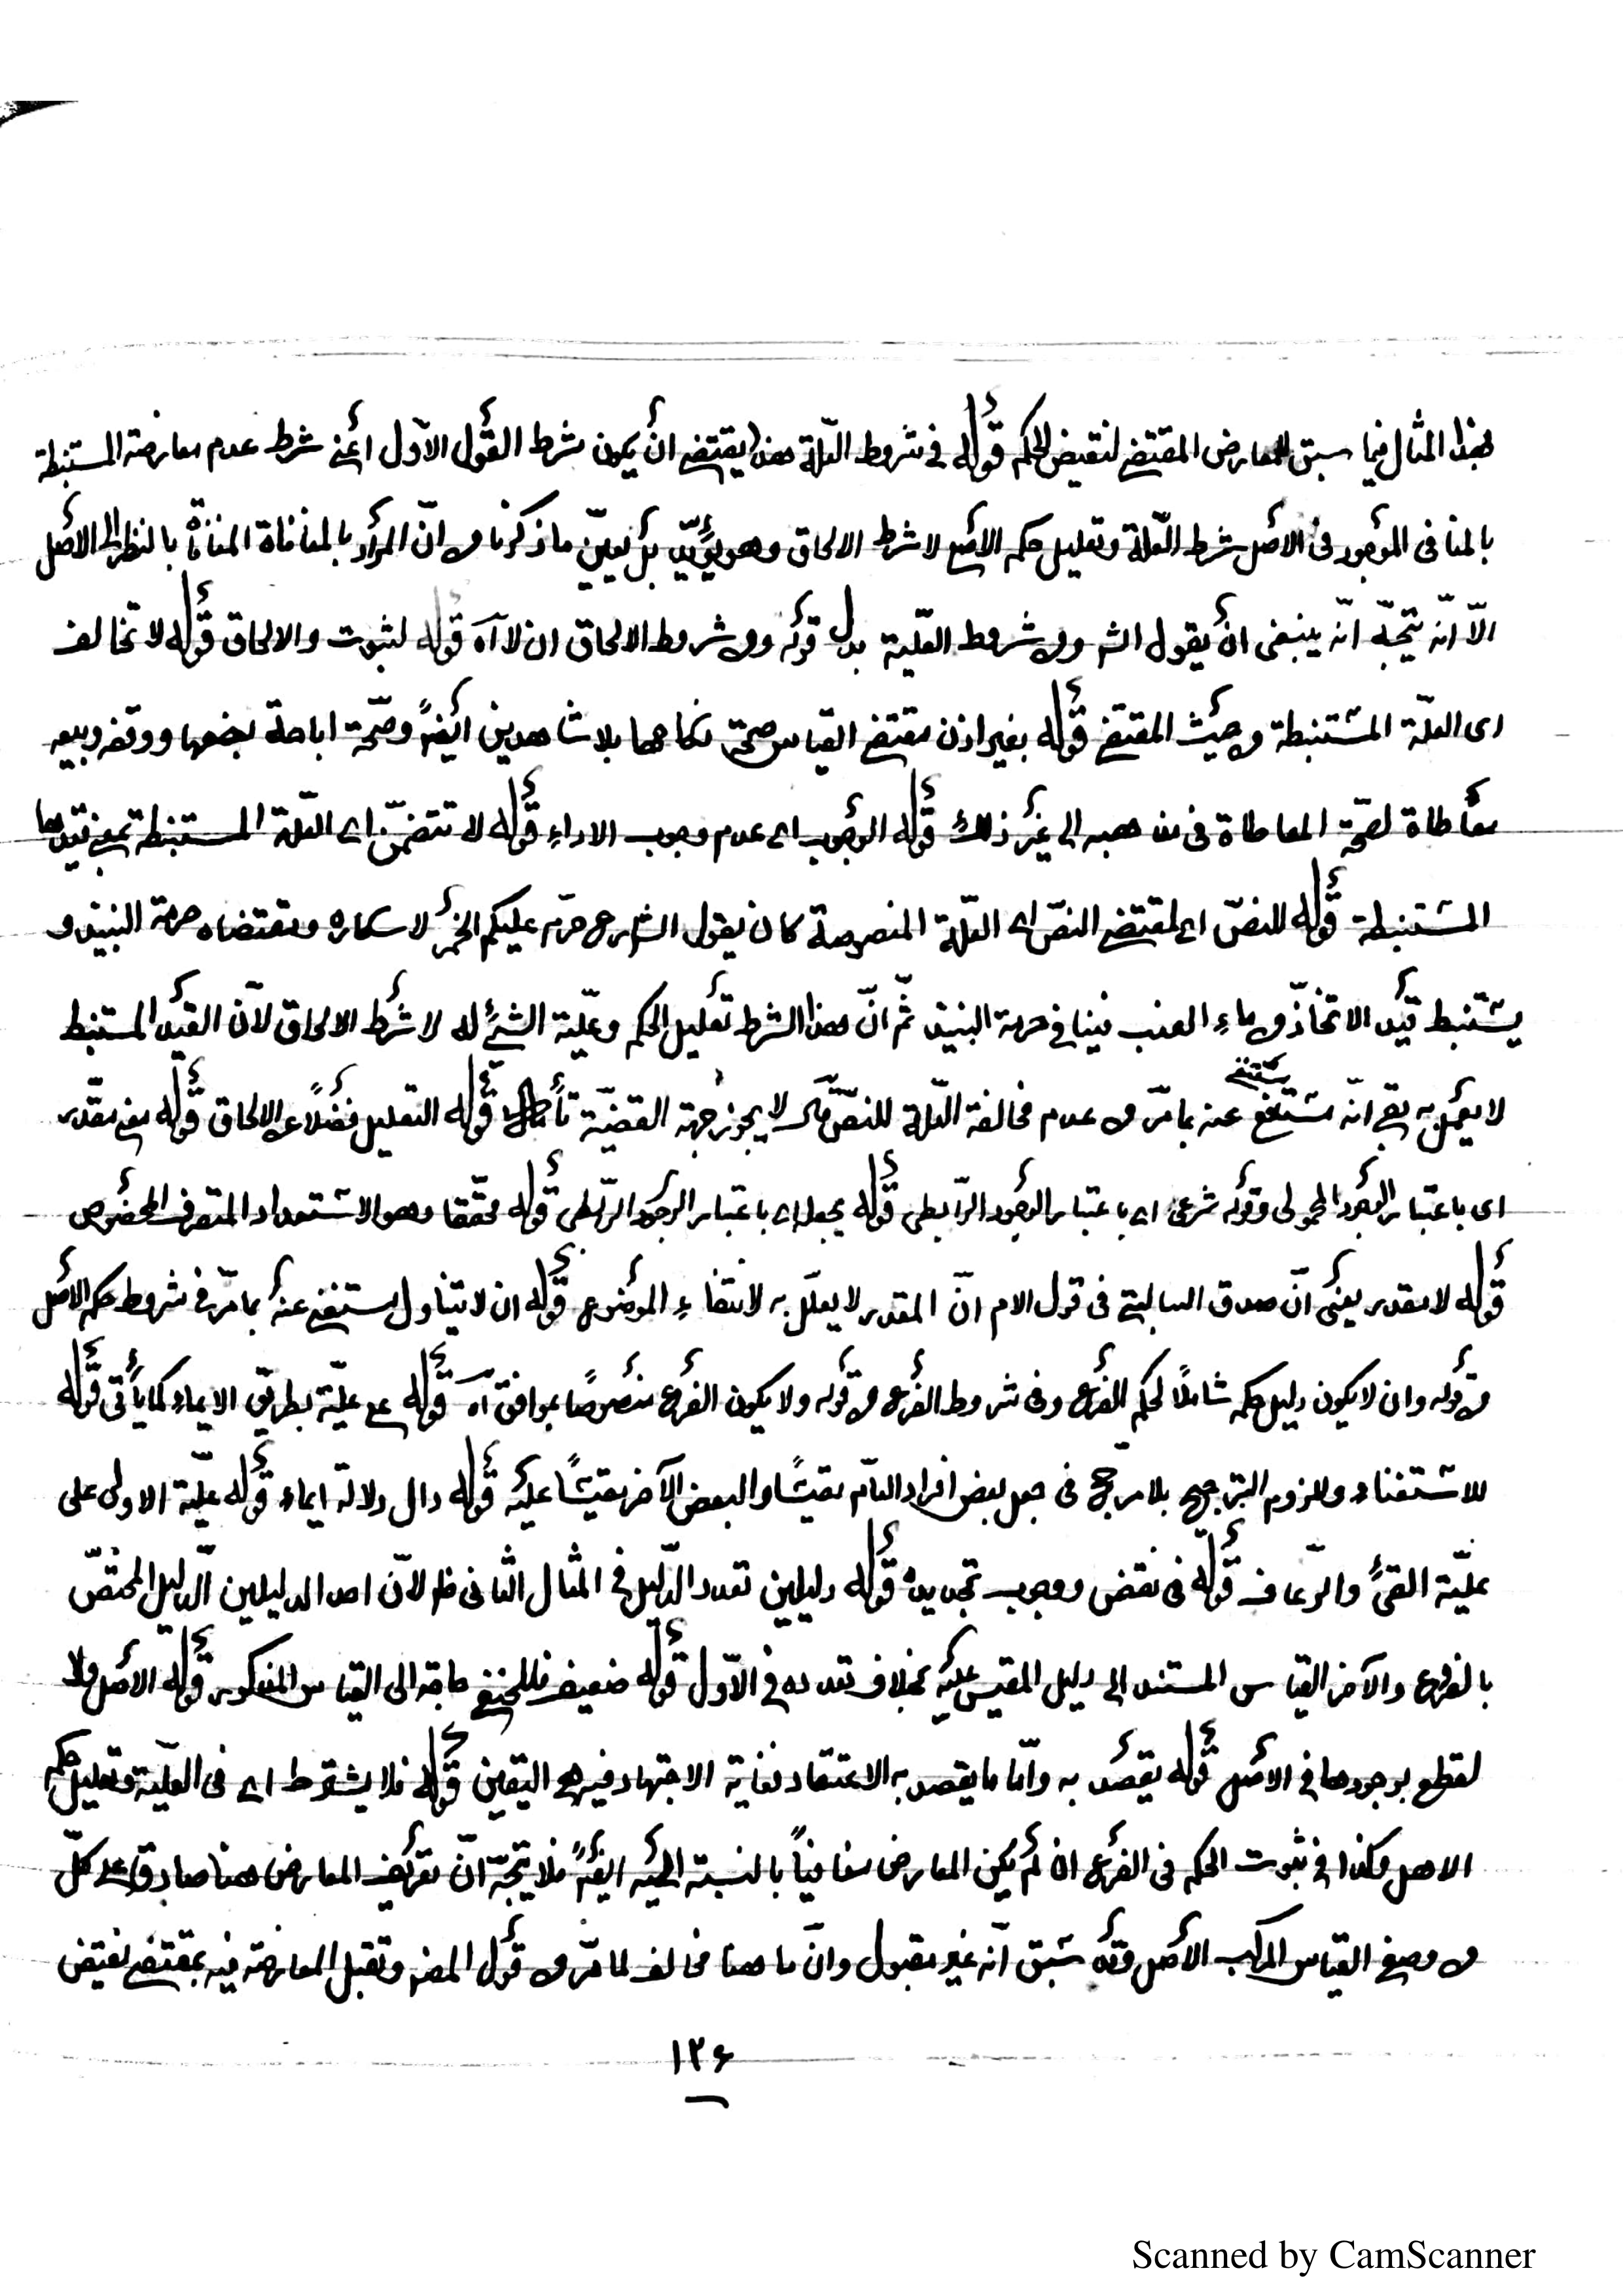 بهذا المثال فيما سبق للمعارض المقتضى لنقيض الحكم قوله في شروط العلة هذا يقتضى ان يكون شرط القول الاول اعنى شرط عدم معارضة المستنبطة
بالمنافى الموجود فى الاصل شرط العلة وتعليل حكم الاصل لا شرط الالحاق وهو يؤيد بل يعين ما ذكرنا من انّ المراد بالمنافاة المنافاة بالنظر الى الاصل
الّا انه يتجه انّه ينبغى ان يقول الش ومن شروط العلية بدل قوله ومن شروط الالحاق ان لا آه قوله لثبوت والالحاق قوله لا تخالف
اى العلّة المستنبطة من حيث المقتضى قوله بغير اذن مقتضى القياس صحة نكاحها بلا شاهدين ايضاً وصحّة اباحة بضعها ووقفه وبيعه
معاطاة لصحّة المعاطاة فى مذهبه الى غير ذلك قوله الوجوب اى عدم وجوب الاداء قوله لا تتضمن اى العلّة المستنبطة بمعنى قيدها
المستنبطة قوله للنصّ اى لمقتضى النصّ اى العلّة المنصوصة كان يقول الشارع حرّم عليكم الخمر لاسكاره ومقتضاه حرمة النبيذ و
يستنبط قيد الاتخاذ من ماء العنب فينافى حرمة النبيذ ثمّ انّ هذا الشرط تعليل الحكم وعلّية الشئ له لا شرط الالحاق لانّ القيد المستنبط
لا يعمل به بقى انّه مستغنى عنه بما مرّ من عدم مخالفة العلّة للنصّ لا يجوز جهة القضيّة تأمل قوله التعليل فضلاً عن الالحاق قوله معنى مقدّر
اى باعتبار الوجود المحمولى وقوله شرعى اى باعتبار الوجود الرّابطى قوله يجعل اى باعتبار الوجود الرّابطى قوله محقّقا وهو الاستعداد المتصرف المخصوص
قوله لا مقدر يعنى انّ صدق السالبة فى قول الامام انّ المقدر لا يعلّل به لانتفاء الموضوع قوله ان لا يتناول مستغنى عنه بما مرّ فى شروط حكم الاصل
من قوله وان لا يكون دليل حكمه شاملاً لحكم الفرع وفى شروط الفرع من قوله ولا يكون الفرع منصوصاً بموافق آه قوله على علّية بطريق الايماء كما يأتى قوله
للاستغناء ولزوم الترجيح بلا مرجح فى جعل بعض افراد العام مقيساً والبعض الآخر مقيساً عليه قوله دال دلالة ايماء قوله علّية الاولى على
علّية القئ والرّعاف قوله فى نقض ووجوب تجديده قوله دليلين تعدد الدّليل فى المثال الثانى ظ لانّ احد الدليلين الدّليل المختصّ
بالفرع والآخر القياس المستند الى دليل المقيس عليه بخلاف تعدده فى الاوّل قوله ضعيف فللخصم حاجة الى القياس المذكور قوله الاصل ولا
لقطع بوجودها فى الاصل قوله يقصد به وامّا ما يقصد به الاعتقاد فغاية الاجتهاد فيه هى اليقين قوله فلا يشترط اى فى العلّية وتعليل حكم
الاصل وكذا فى ثبوت الحكم فى الفرع ان لم يكن المعارض منافياً بالنسبة اليه ايضاً فلا يتجه انّ تعريف المعارض هنا صادق على كلّ
من وصفى القياس المركب الاصل وقد سبق انّه غير مقبول وانّ ما هنا مخالف لما مرّ من قول المص وتقبل المعارضة فيه بمقتضى نقيض
١٢٦
Scanned by CamScanner